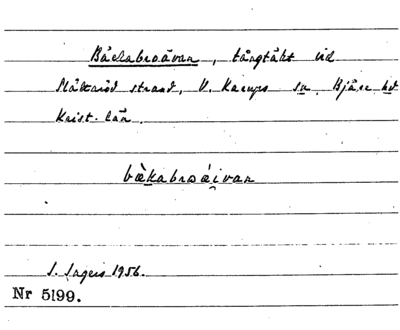 Bäckabroävan, tångtäkt vid
Slättaröd strand, V. Karups sn, Bjäre hd
Krist. län.
bæ̀kabroá́i̯van
S. Ingers 1956.
Nr 5199.